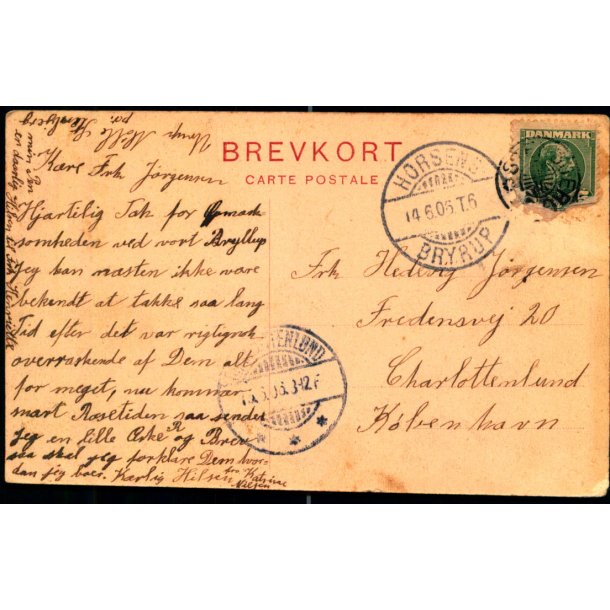 BREVKORT
CARTE POSTALE
DANMARK
HORSENS
14.6.06.T.6
BRYRUP
Kære Frk Jørgensen
Hjærtelig Tak for Opmærk
somheden ved vort Bryllup
Jeg kan næsten ikke være
bekendt at takke saa lang
Tid efter det var rigtignok
overraskende af Dem alt
for meget, nu kommer
snart Rosetiden saa sender
jeg en lille Æske og Brev
saa skal jeg forklare Dem hvor-
dan jeg boer. Kærlig Hilsen fra Katrine
Nielsen
Frk Hedevig Jørgensen
Fredensvej 20
Charlottenlund
København